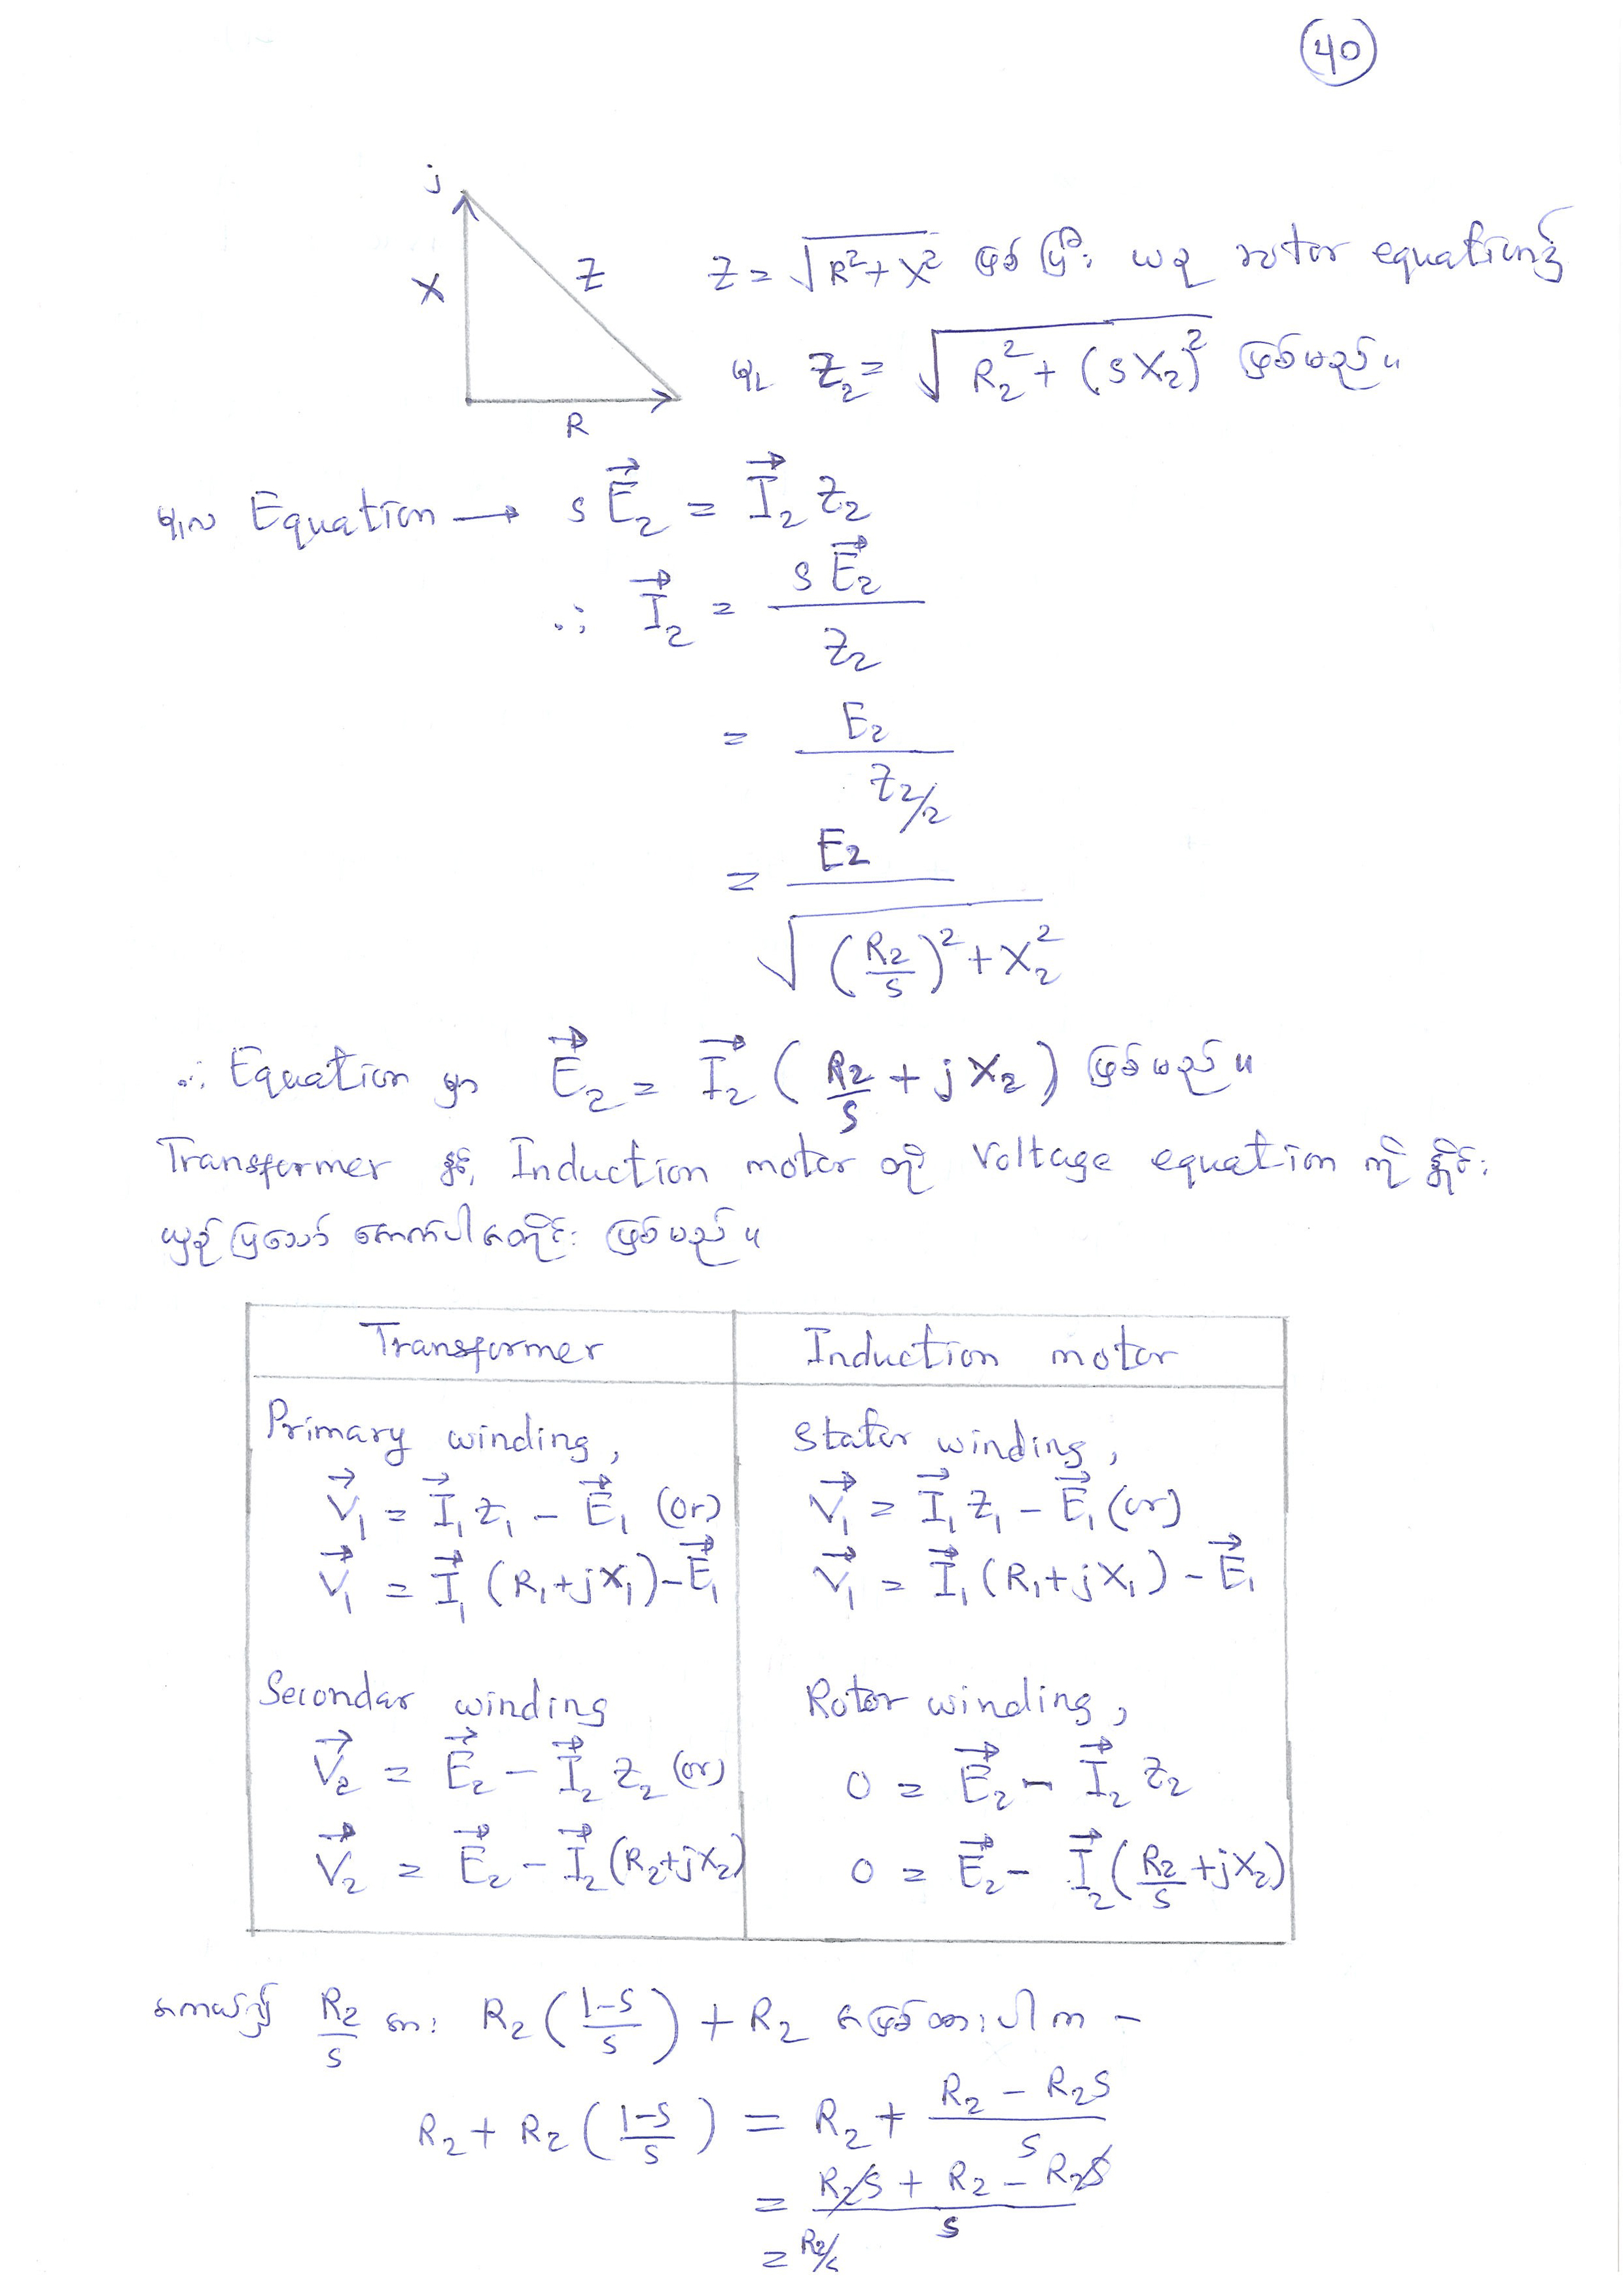 40
j
X
Z
R
Z = √R²+X² ဖြစ်ပြီး ယခု rotor equation၌
မူ Z₂ = √R₂² + (sX₂)² ဖြစ်မည်။
မူလ Equation → sE⃗₂ = I⃗₂ Z₂
∴ I⃗₂ = sE⃗₂ / Z₂
= E₂ / Z₂/2
= E₂ / √(R₂/s)² + X₂²
∴ Equation မှာ E⃗₂ = I⃗₂ (R₂/s + jX₂) ဖြစ်မည်။
Transformer နှင့် Induction motor တို့ Voltage equation ကို နှိုင်း
ယှဉ်ပြသော် အောက်ပါအတိုင်း ဖြစ်မည်။
Transformer
Induction motor
Primary winding,
V⃗₁ = I⃗₁ Z₁ − E⃗₁ (or)
V⃗₁ = I⃗₁ (R₁+jX₁) − E⃗₁
Stator winding,
V⃗₁ = I⃗₁ Z₁ − E⃗₁ (or)
V⃗₁ = I⃗₁ (R₁+jX₁) − E⃗₁
Secondar winding
V⃗₂ = E⃗₂ − I⃗₂ Z₂ (or)
V⃗₂ = E⃗₂ − I⃗₂ (R₂+jX₂)
Rotor winding,
0 = E⃗₂ − I⃗₂ Z₂
0 = E⃗₂ − I⃗₂ (R₂/s + jX₂)
အကယ်၍ R₂/s အား R₂ (1−s/s) + R₂ အဖြစ်ထားပါက −
R₂ + R₂ (1−s/s) = R₂ + R₂ − R₂s / s
= R₂s + R₂ − R₂s / s
= R₂/s